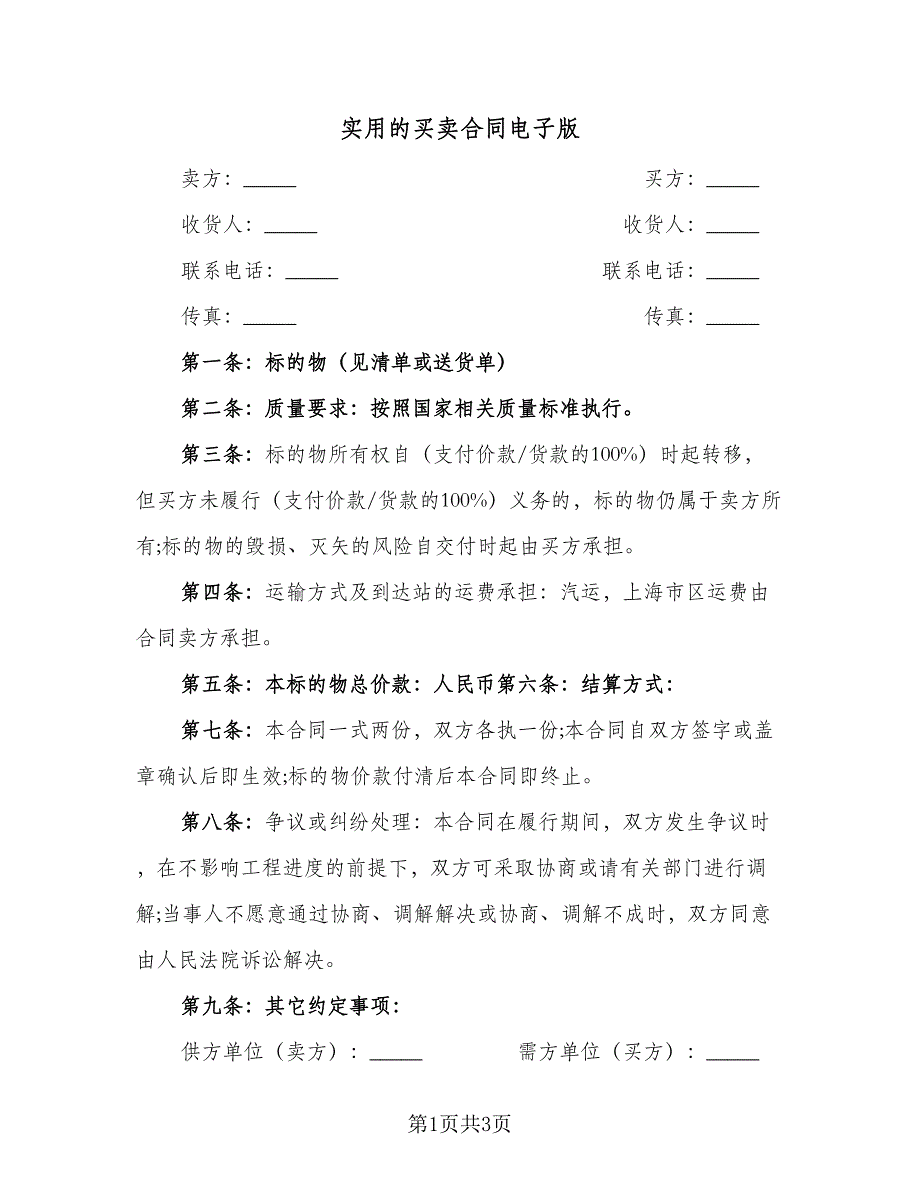 实用的买卖合同电子版
卖方：_____ 买方：_____
收货人：_____ 收货人：_____
联系电话：_____ 联系电话：_____
传真：_____ 传真：_____
第一条：标的物（见清单或送货单）
第二条：质量要求：按照国家相关质量标准执行。
第三条：标的物所有权自（支付价款/货款的100%）时起转移，
但买方未履行（支付价款/货款的100%）义务的，标的物仍属于卖方所
有;标的物的毁损、灭矢的风险自交付时起由买方承担。
第四条：运输方式及到达站的运费承担：汽运，上海市区运费由
合同卖方承担。
第五条：本标的物总价款：人民币第六条：结算方式：
第七条：本合同一式两份，双方各执一份;本合同自双方签字或盖
章确认后即生效;标的物价款付清后本合同即终止。
第八条：争议或纠纷处理：本合同在履行期间，双方发生争议时
，在不影响工程进度的前提下，双方可采取协商或请有关部门进行调
解;当事人不愿意通过协商、调解解决或协商、调解不成时，双方同意
由人民法院诉讼解决。
第九条：其它约定事项：
供方单位（卖方）：_____ 需方单位（买方）：_____
第1页共3页